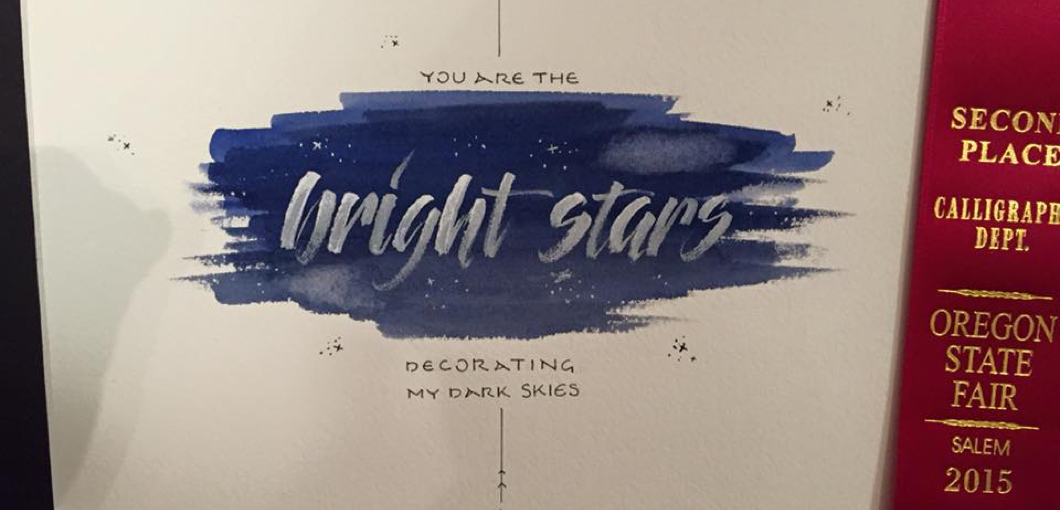 YOU ARE THE
bright stars
DECORATING
MY DARK SKIES
SECON
PLACE
CALLIGRAPH
DEPT.
OREGON
STATE
FAIR
SALEM
2015